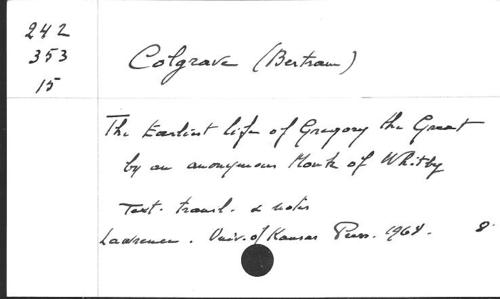 242
353
15
Colgrave (Bertram)
The Earliest life of Gregory the Great
by an anonymous Monk of Whitby
Text. transl. & notes
Lawrence. Univ. of Kansas Press. 1968. 8°